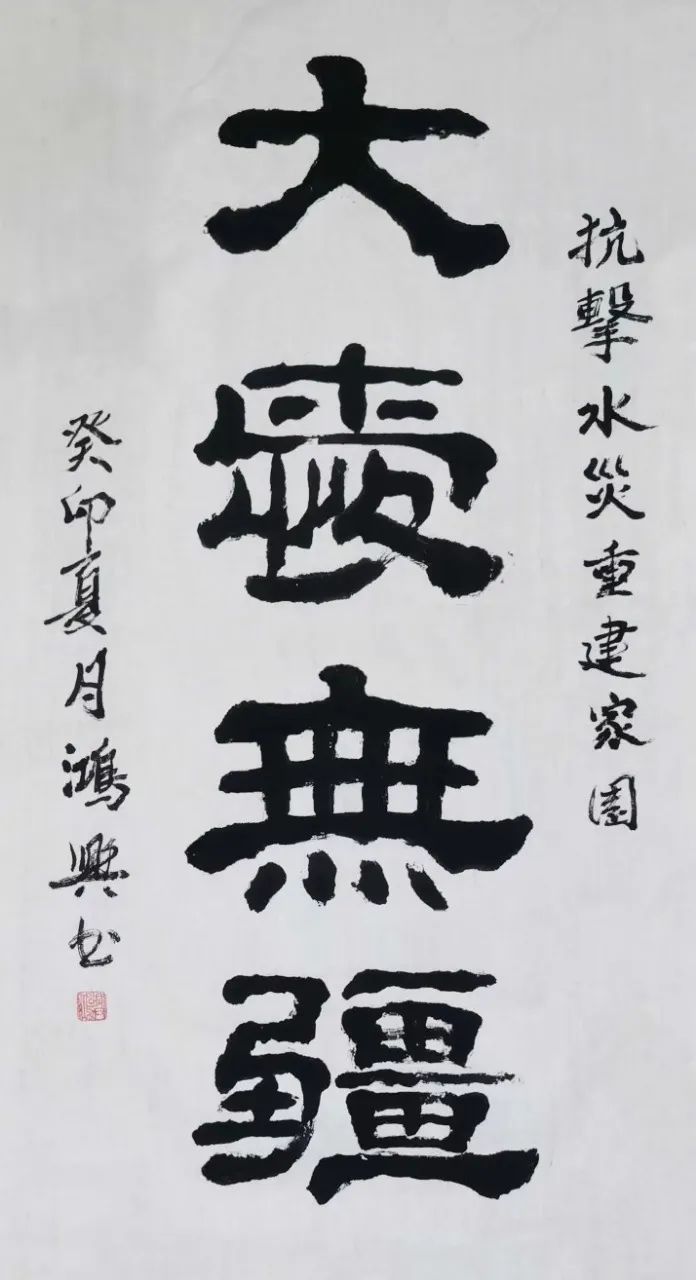 抗擊水災重建家園
大愛無疆
癸卯夏月鴻興书